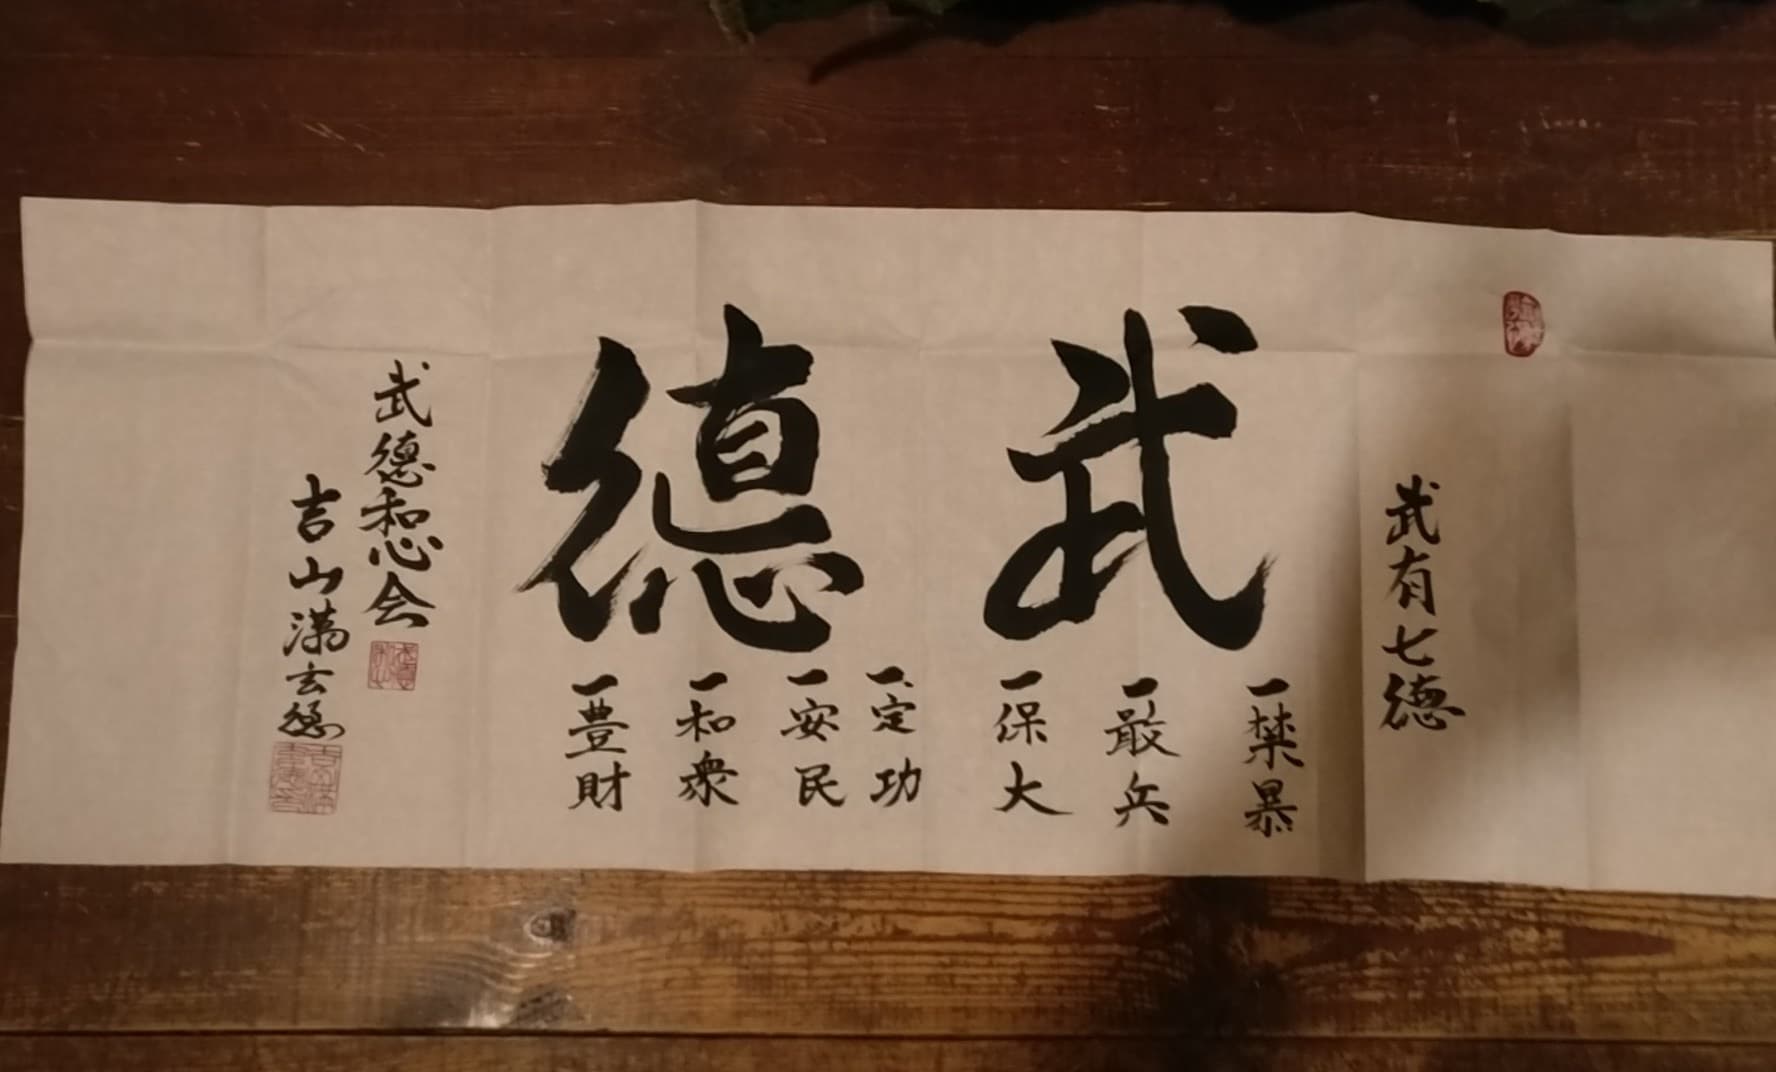 武有七徳
武徳
一禁暴
一兵
一保大
一定功
一安民
一和衆
一豊財
武徳和心会
吉山満玄